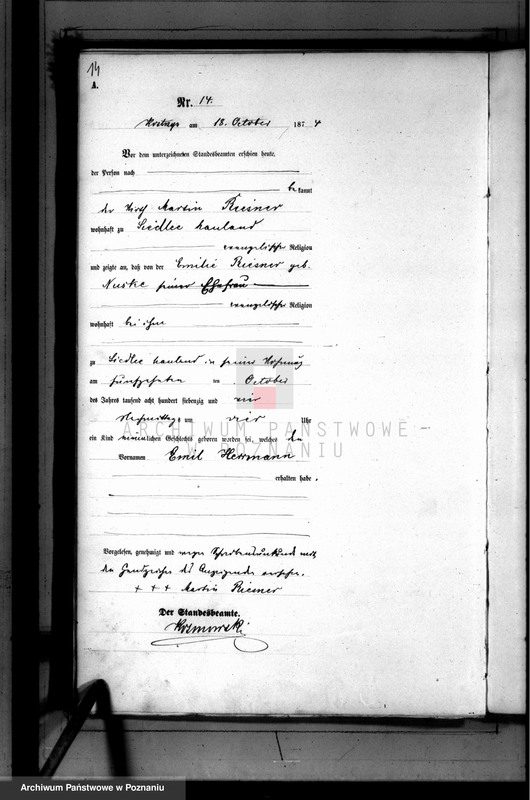 14
A.
Nr. 14.
am 18. October 1874
Vor dem unterzeichneten Standesbeamten erschien heute,
der Person nach
bekannt
der Wirth Martin Riesner
wohnhaft zu Siedlec Hauland
evangelischer Religion
und zeigte an, daß von der Emilie Riesner geb.
Nuske seiner Ehefrau
evangelischer Religion
wohnhaft bei ihm
zu Siedlec Hauland in seiner Wohnung
am fünfzehnten ten October
des Jahres tausend acht hundert siebenzig und vier
Nachmittags um vier Uhr
ein Kind männlichen Geschlechts geboren worden sei, welches die
Vornamen Emil Herrmann
erhalten habe.
Vorgelesen, genehmigt und wegen Schreibensunkunde mit
den Handzeichen des Anzeigenden versehen.
+ + + Martin Riesner
Der Standesbeamte.
ARCHIWUM PAŃSTWOWE
W POZNANIU
Archiwum Państwowe w Poznaniu